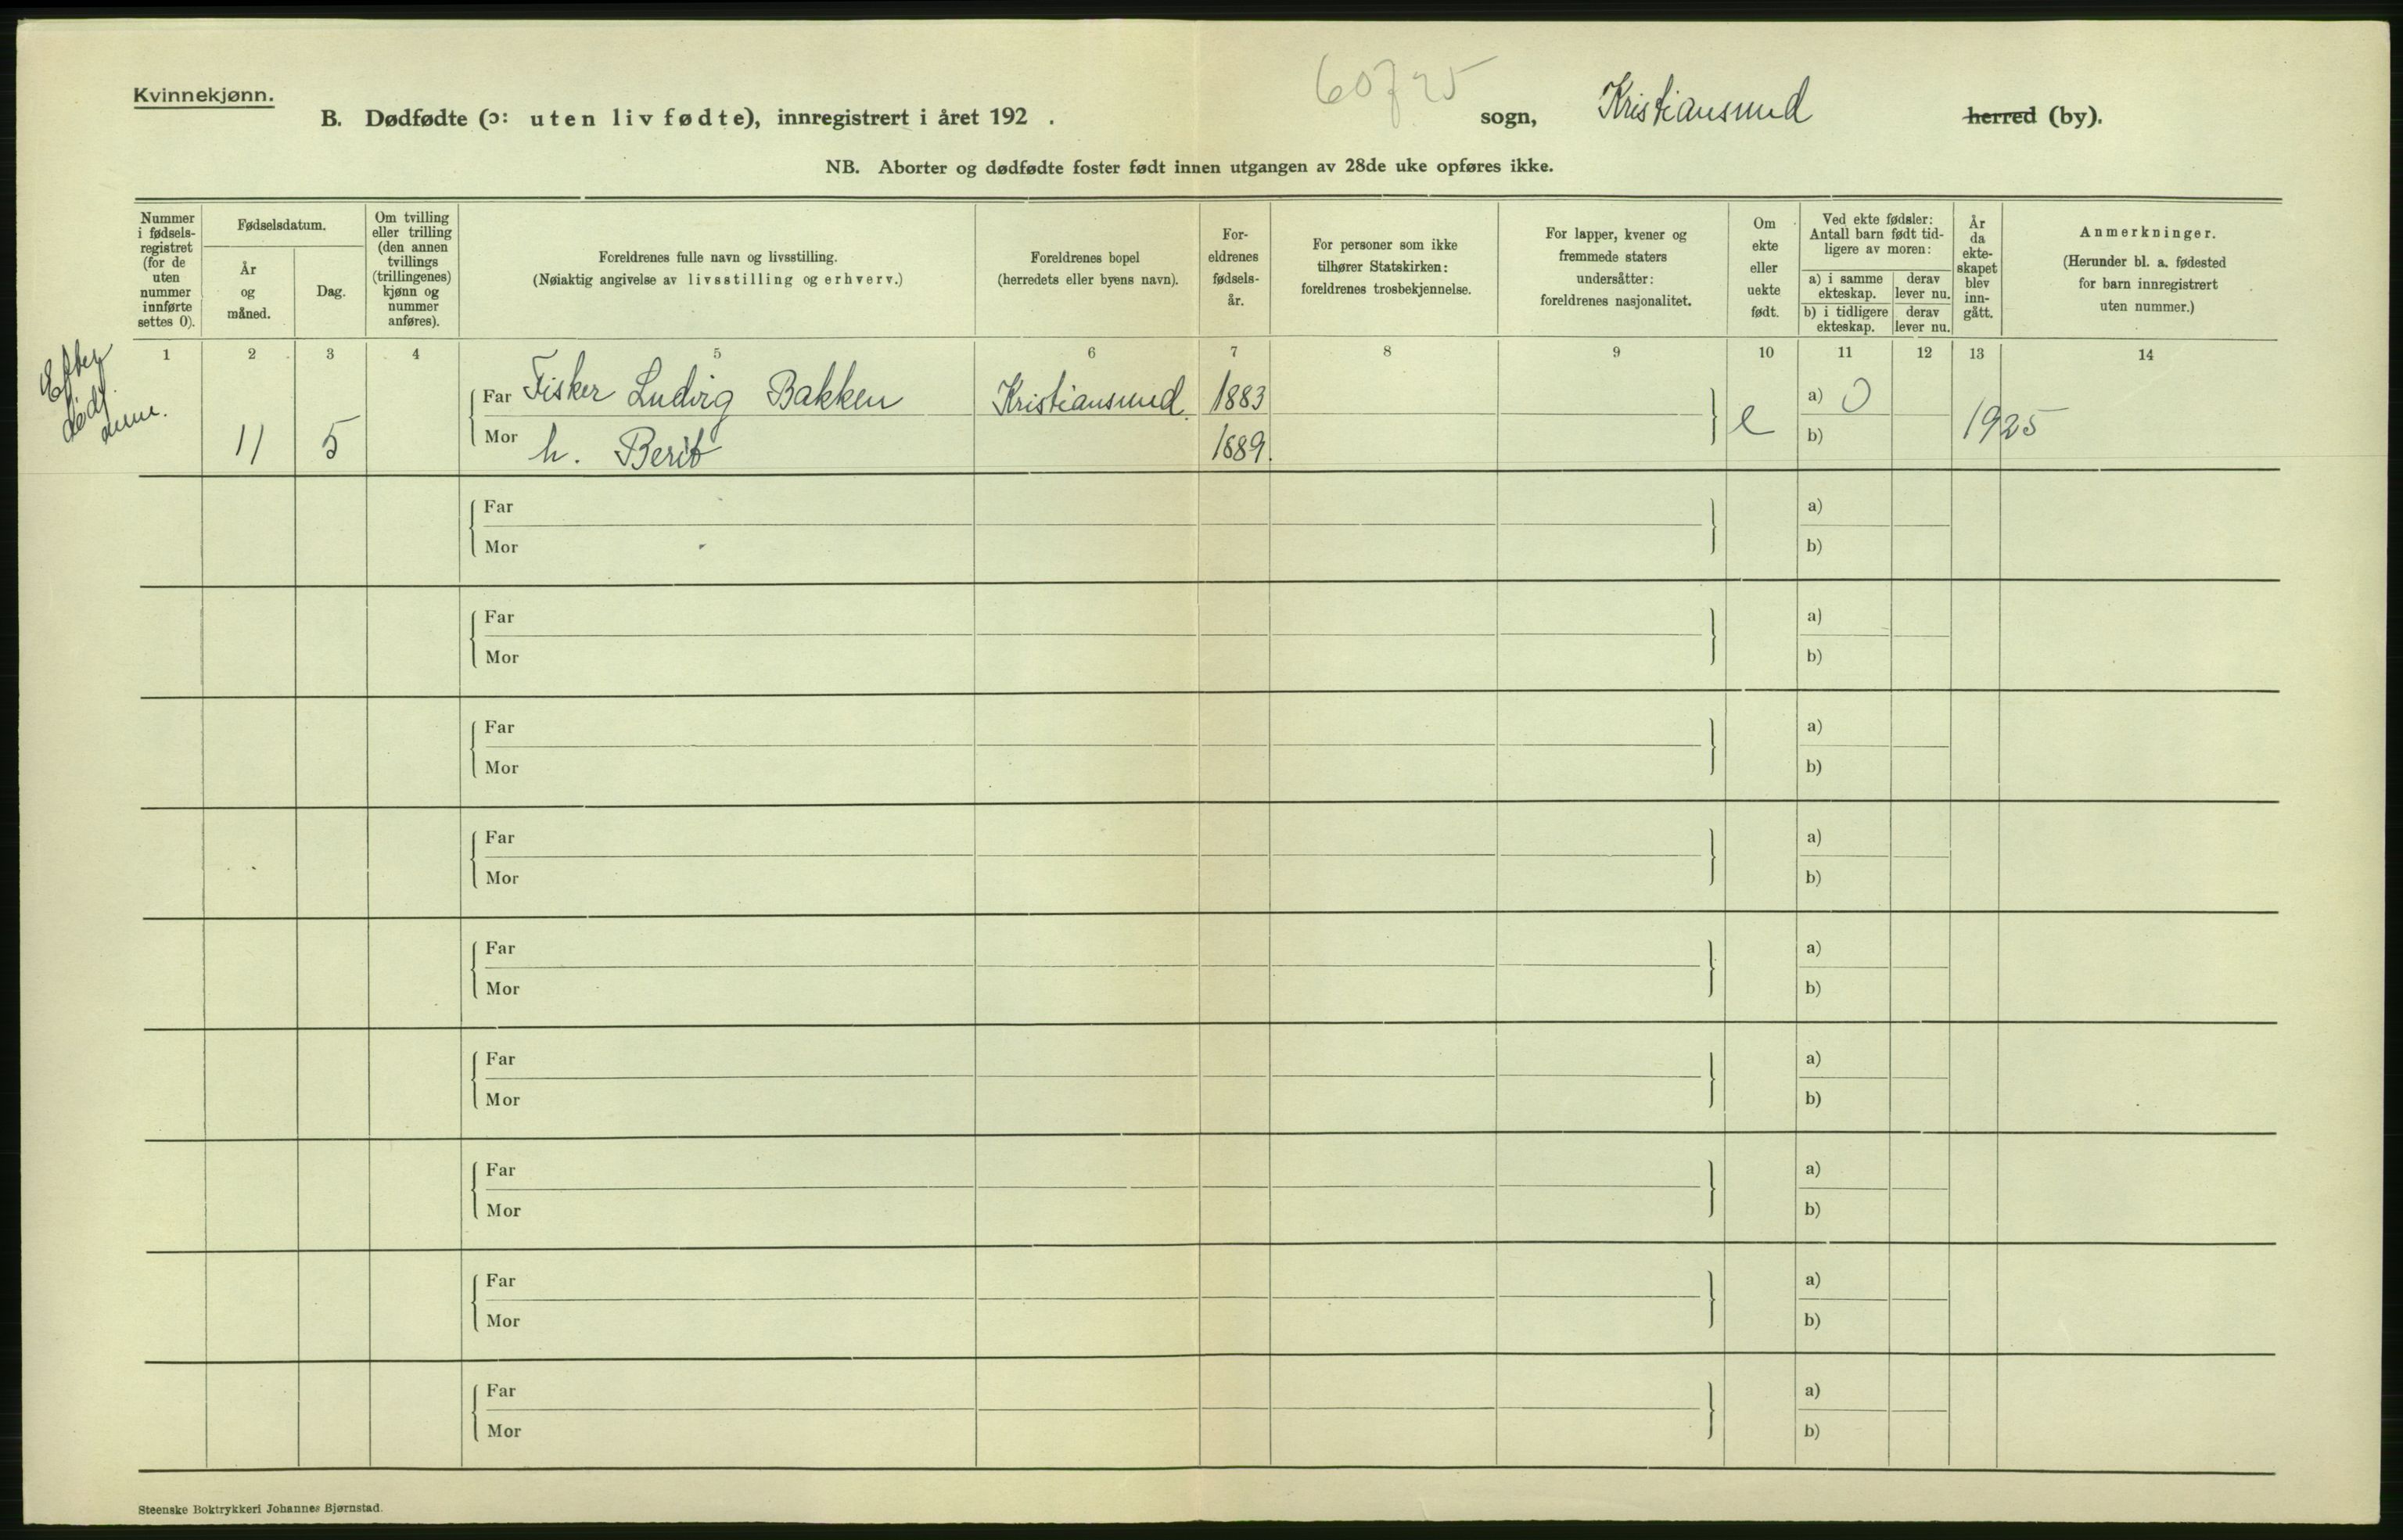 Kvinnekjønn.
60 f 25
B. Dødfødte (ɔ: uten liv fødte), innregistrert i året 192 . sogn, Kristiansund herred (by).
NB. Aborter og dødfødte foster født innen utgangen av 28de uke opføres ikke.
Nummer i fødsels-registret (for de uten nummer innførte settes 0).
Fødselsdatum.
År og måned.
Dag.
Om tvilling eller trilling (den annen tvillings (trillingenes) kjønn og nummer anføres).
Foreldrenes fulle navn og livsstilling.
(Nøiaktig angivelse av livsstilling og erhverv.)
Foreldrenes bopel
(herredets eller byens navn).
For-eldrenes fødsels-år.
For personer som ikke tilhører Statskirken: foreldrenes trosbekjennelse.
For lapper, kvener og fremmede staters undersåtter: foreldrenes nasjonalitet.
Om ekte eller uekte født.
Ved ekte fødsler: Antall barn født tid-ligere av moren:
a) i samme ekteskap. derav lever nu.
b) i tidligere ekteskap. derav lever nu.
År da ekte-skapet blev inn-gått.
Anmerkninger.
(Herunder bl. a. fødested for barn innregistrert uten nummer.)
1 2 3 4 5 6 7 8 9 10 11 12 13 14
Far Fisker Ludvig Bakken Kristiansund. 1883 a) 0
11 5 Mor h. Berit 1889. e b) 1925
Far a)
Mor b)
Far a)
Mor b)
Far a)
Mor b)
Far a)
Mor b)
Far a)
Mor b)
Far a)
Mor b)
Far a)
Mor b)
Far a)
Mor b)
Far a)
Mor b)
Steenske Boktrykkeri Johannes Bjørnstad.